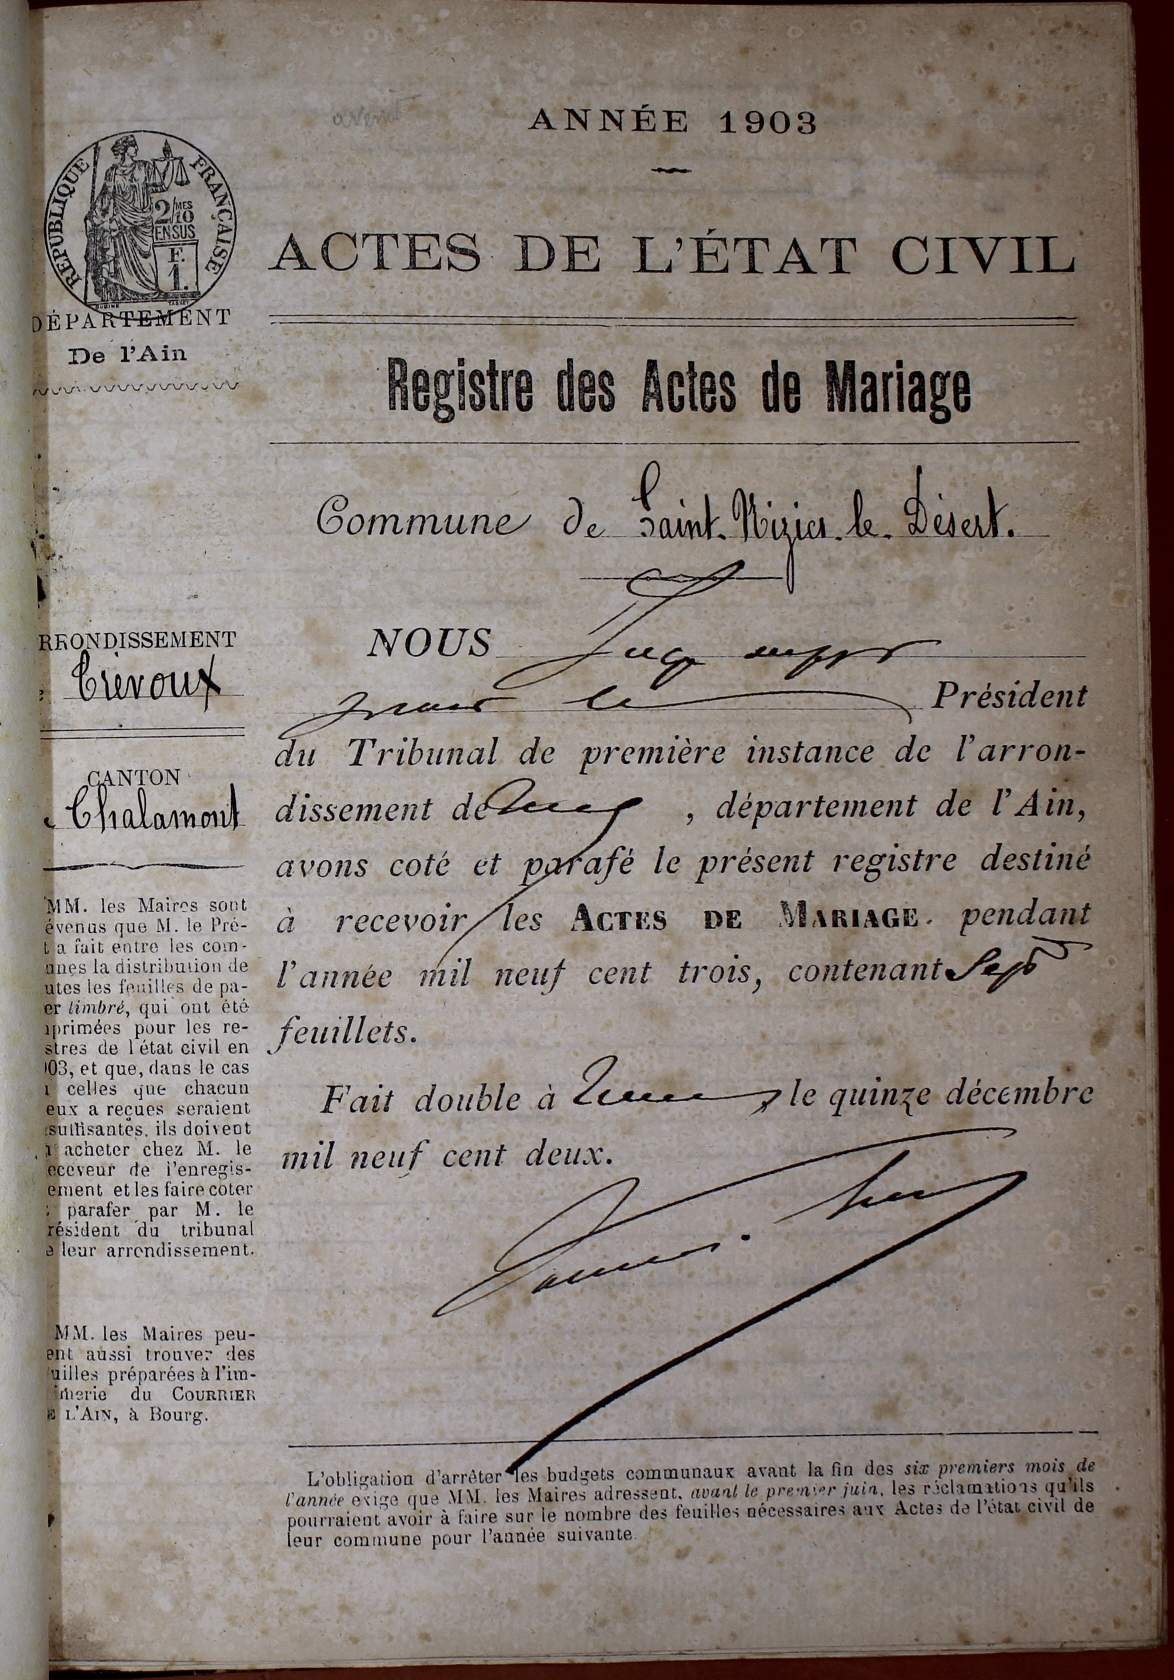 avenir
ANNÉE 1903
RÉPUBLIQUE FRANÇAISE
2/MES
10
EN SUS
F.
1.
ACTES DE L'ÉTAT CIVIL
DÉPARTEMENT
De l'Ain
Registre des Actes de Mariage
Commune de Saint-Nizier-le-Désert.
RRONDISSEMENT
Trévoux
CANTON
Chalamont
MM. les Maires sont
évenus que M. le Pré-
t a fait entre les com-
unes la distribution de
utes les feuilles de pa-
er timbré, qui ont été
primées pour les re-
stres de l'état civil en
03, et que, dans le cas
celles que chacun
eux a reçues seraient
suffisantes, ils doivent
acheter chez M. le
eceveur de l'enregis-
ement et les faire coter
parafer par M. le
résident du tribunal
e leur arrondissement.
MM. les Maires peu-
ent aussi trouver des
uilles préparées à l'im-
imerie du COURRIER
E L'AIN, à Bourg.
NOUS Juge suppt
pour le Président
du Tribunal de première instance de l'arron-
dissement de , département de l'Ain,
avons coté et parafé le présent registre destiné
à recevoir les ACTES DE MARIAGE. pendant
l'année mil neuf cent trois, contenant Sept
feuillets.
Fait double à le quinze décembre
mil neuf cent deux.
L'obligation d'arrêter les budgets communaux avant la fin des six premiers mois de
l'année exige que MM. les Maires adressent, avant le premier juin, les réclamations qu'ils
pourraient avoir à faire sur le nombre des feuilles nécessaires aux Actes de l'état civil de
leur commune pour l'année suivante